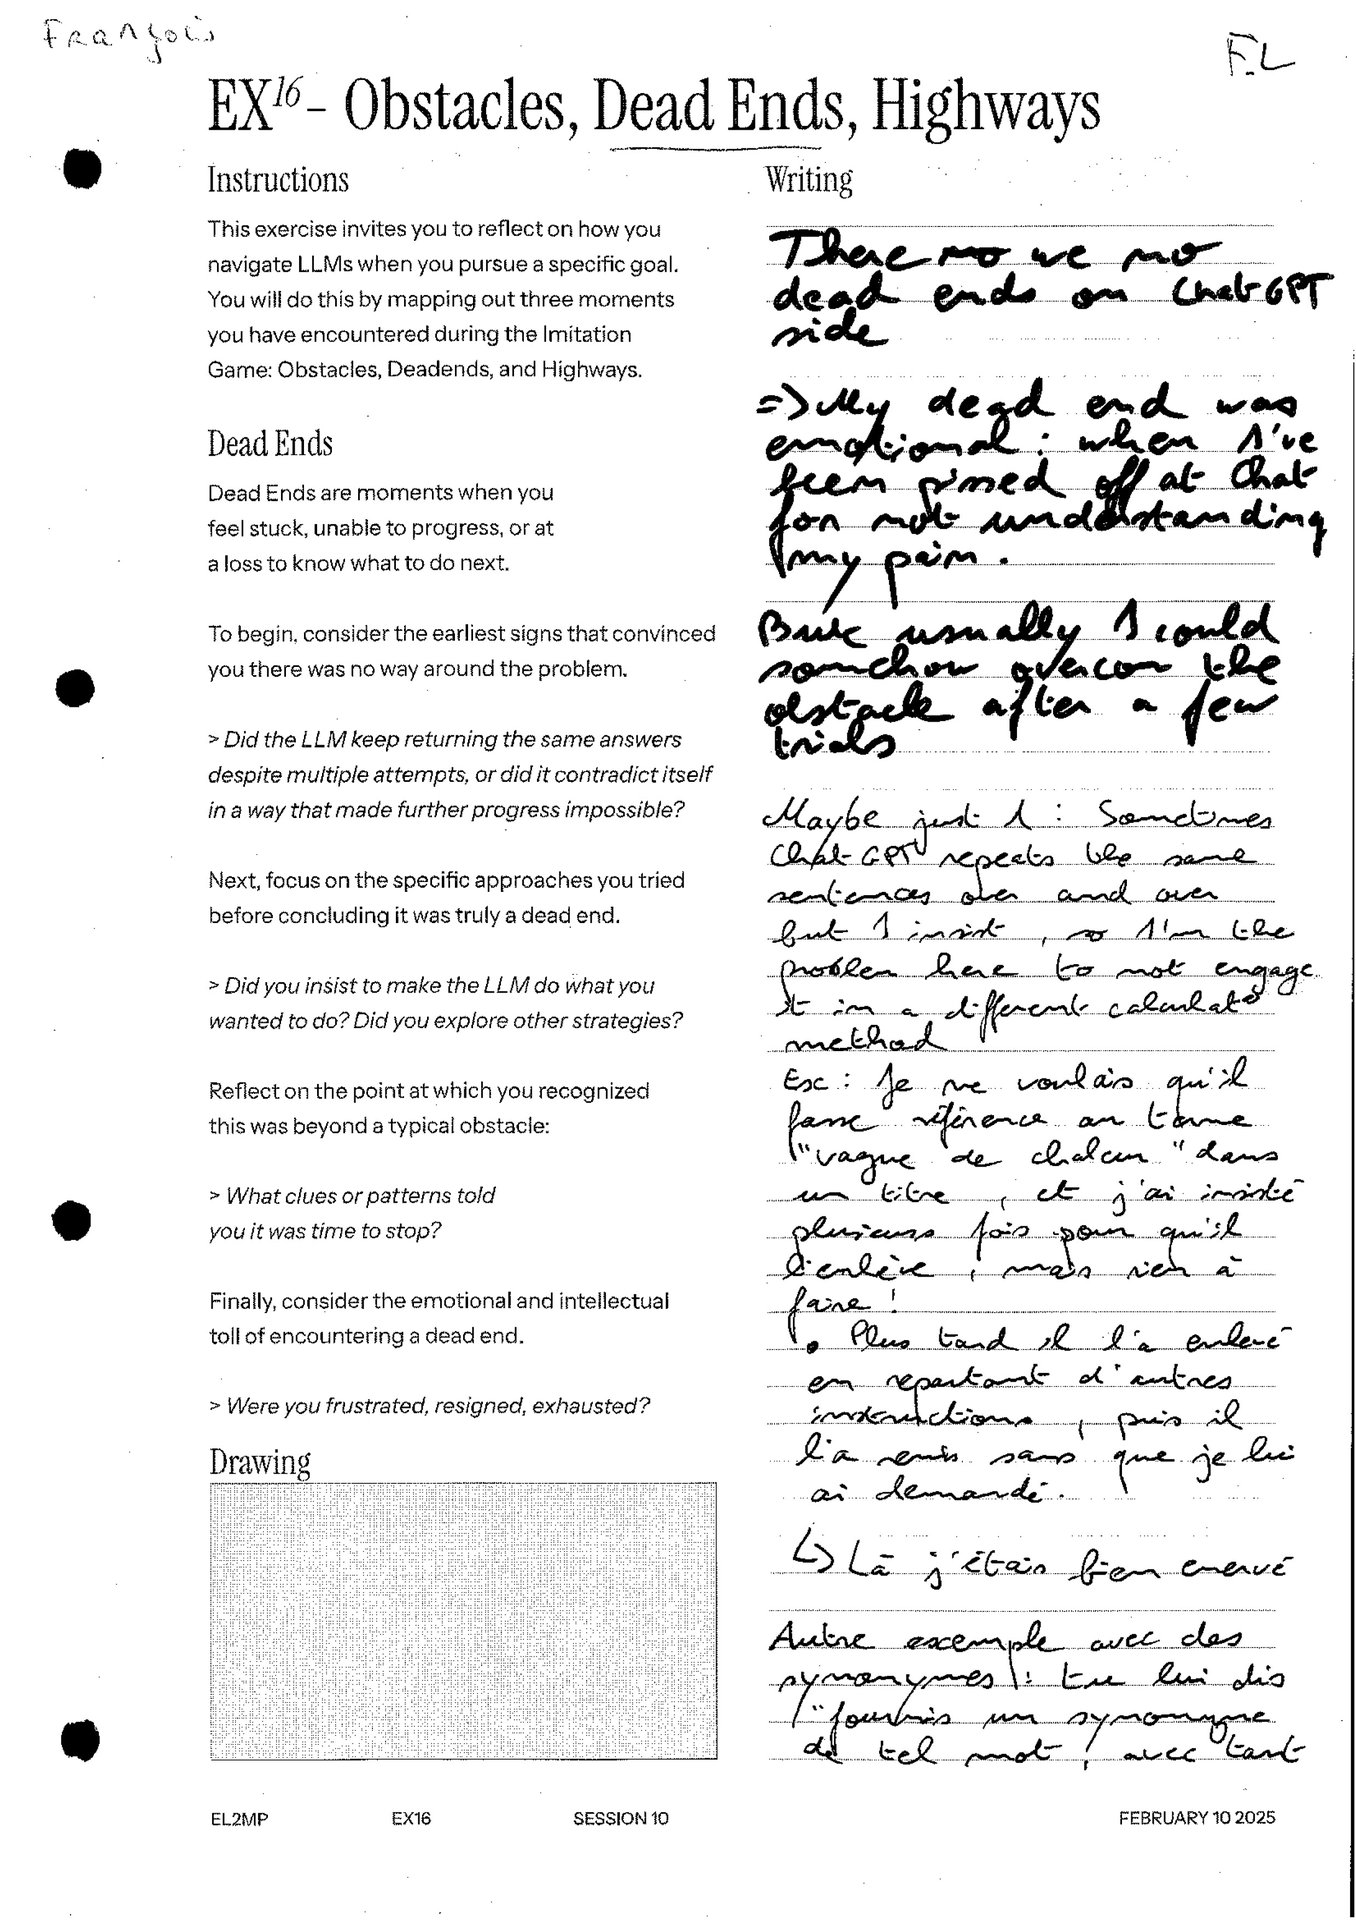 François
F.L
EX16 – Obstacles, Dead Ends, Highways
Instructions
This exercise invites you to reflect on how you
navigate LLMs when you pursue a specific goal.
You will do this by mapping out three moments
you have encountered during the Imitation
Game: Obstacles, Deadends, and Highways.
Dead Ends
Dead Ends are moments when you
feel stuck, unable to progress, or at
a loss to know what to do next.
To begin, consider the earliest signs that convinced
you there was no way around the problem.
> Did the LLM keep returning the same answers
despite multiple attempts, or did it contradict itself
in a way that made further progress impossible?
Next, focus on the specific approaches you tried
before concluding it was truly a dead end.
> Did you insist to make the LLM do what you
wanted to do? Did you explore other strategies?
Reflect on the point at which you recognized
this was beyond a typical obstacle:
> What clues or patterns told
you it was time to stop?
Finally, consider the emotional and intellectual
toll of encountering a dead end.
> Were you frustrated, resigned, exhausted?
Drawing
Writing
There no
dead ends on Chat GPT
side
=> My dead end was
emotional : when I've
been pissed off at Chat
for not understanding
my pain.
But usually I could
somehow overcom the
obstacle after a few
trials
Maybe just 1 : Sometimes
Chat GPT repeats the same
sentences over and over
but I insist, so I'm the
problem here to not engage
it in a different calculato
method
Ex : Je ne voulais qu'il
fasse référence au terme
"vague de chaleur" dans
un titre, et j'ai insisté
plusieurs fois pour qu'il
l'enlève, mais rien à
faire !
• Plus tard il l'a enlevé
en repartant d'autres
instructions, puis il
l'a remis sans que je lui
ai demandé.
↳ Là j'étais bien énervé
Autre exemple avec des
synonymes : tu lui dis
"fournis un synonyme
de tel mot, avec tant
EL2MP EX16 SESSION 10 FEBRUARY 10 2025